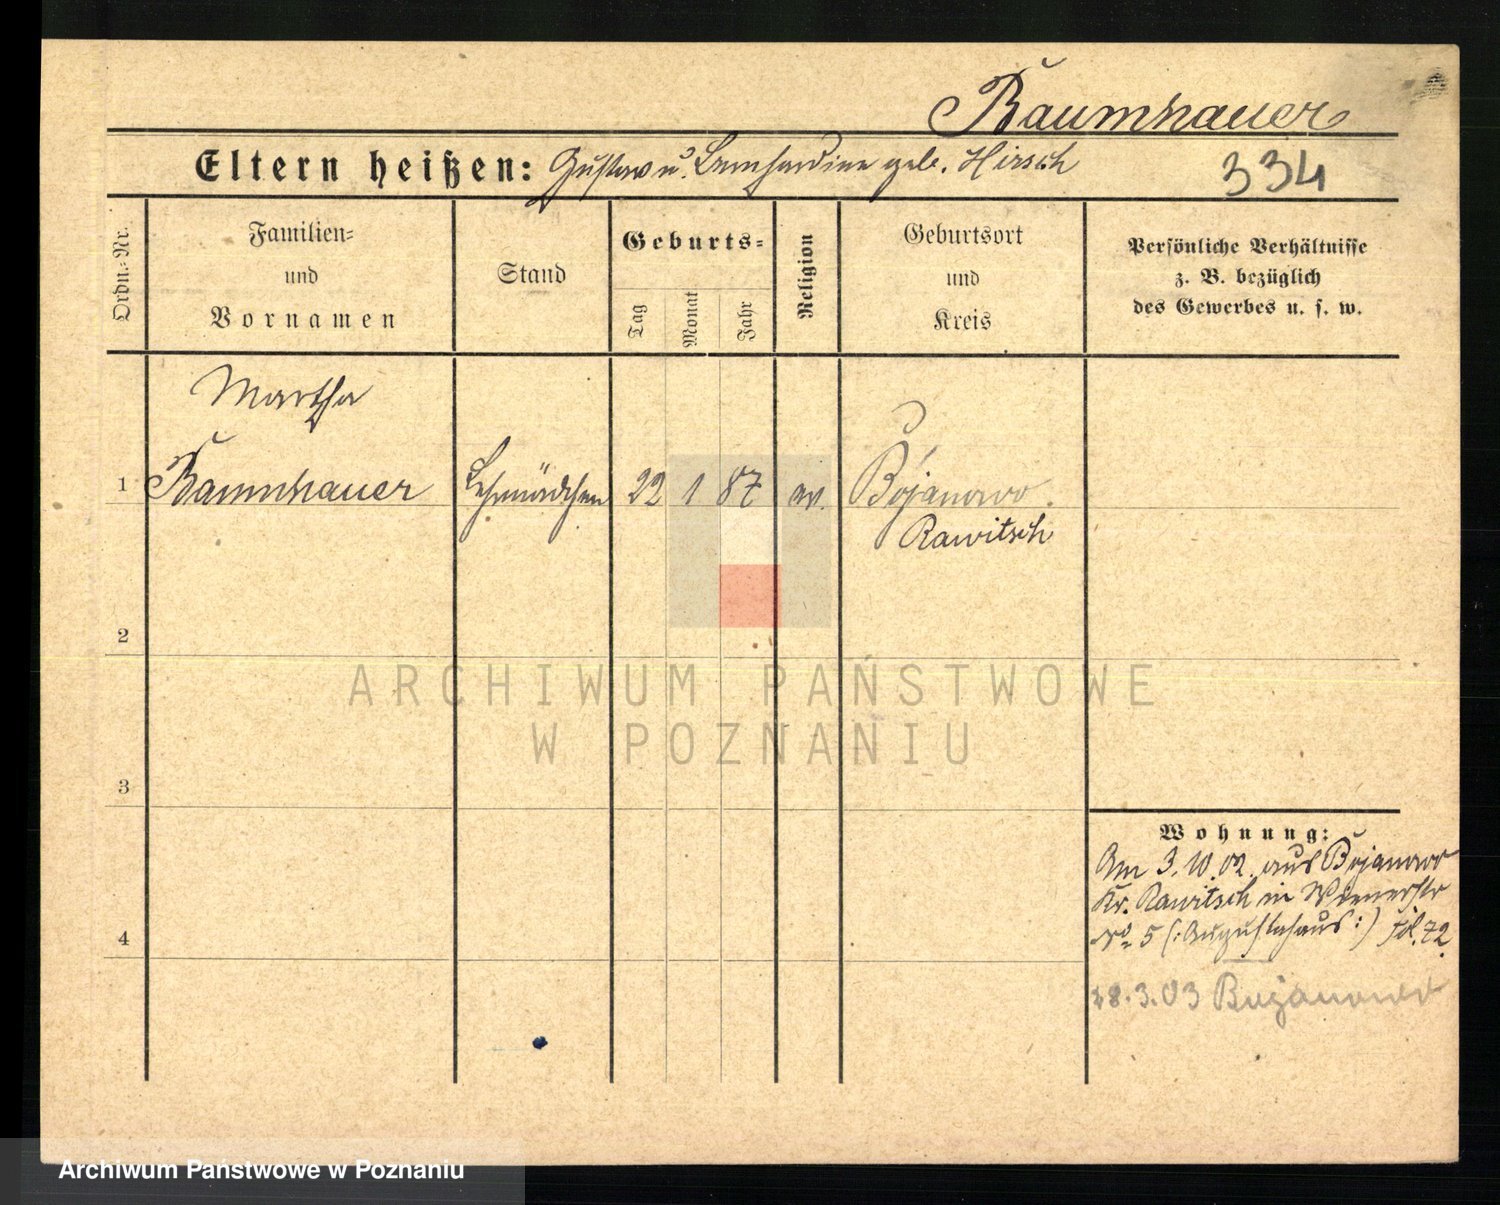 Baumhauer
Eltern heißen: Gustav u. Bernhardine geb. Hirsch
334
Ordn.-Nr.
Familien-
und
Vornamen
Stand
Geburts-
Tag
Monat
Jahr
Religion
Geburtsort
und
Kreis
Persönliche Verhältnisse
z. B. bezüglich
des Gewerbes u. s. w.
Martha
1 Baumhauer Lehrmädchen 22 1 87 ev. Bojanowo
Rawitsch
2
3
4
ARCHIWUM PAŃSTWOWE
W POZNANIU
Wohnung:
Am 3.10.02. aus Bojanowo
Kr. Rawitsch in Wienerstr
No 5 (:Augustahaus:) 72
8.3.03 Bojanowo
Archiwum Państwowe w Poznaniu